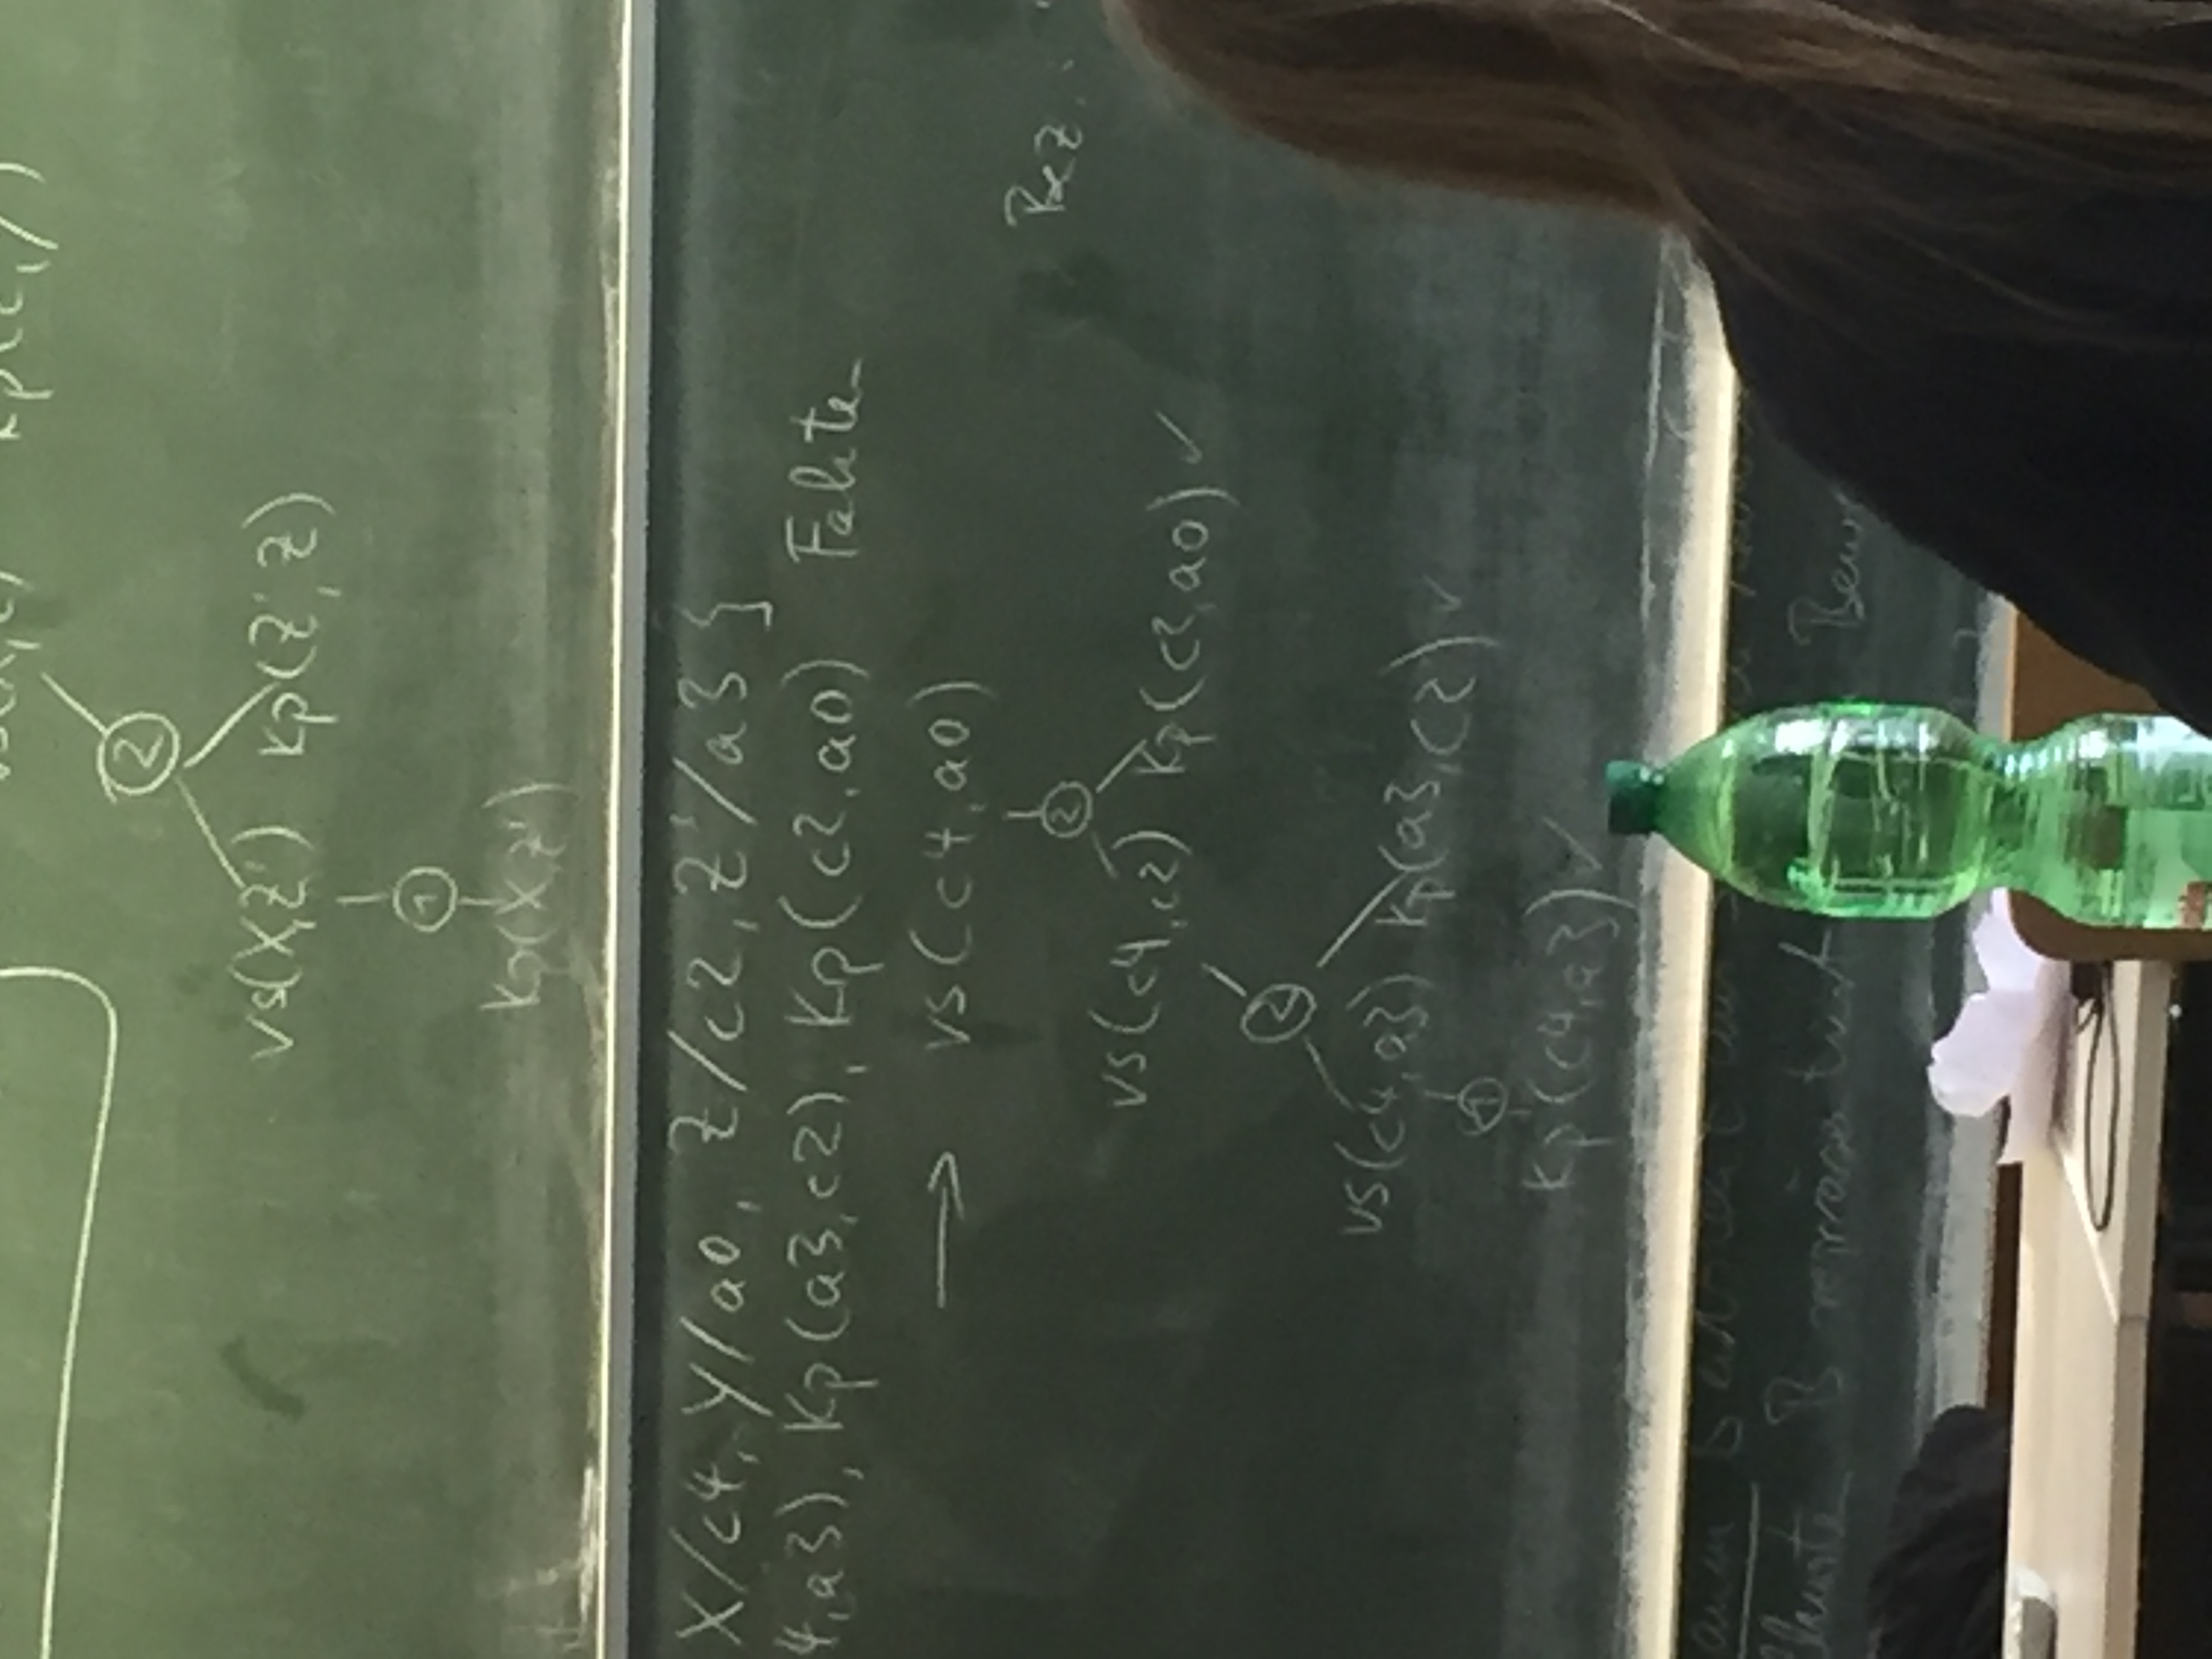 ②
vs(X,Z') Kp(Z',Z)
①
Kp(X,Z')
X/c4, Y/a0, Z/c2, Z'/a3 }
4,a3), Kp(a3,c2), Kp(c2,a0) Fakten
→ vs(c4,a0)
②
Bez..
vs(c4,c2) Kp(c2,a0) ✓
②
vs(c4,a3) Kp(a3,c2) ✓
①
Kp(c4,a3) ✓
B repräsentiert